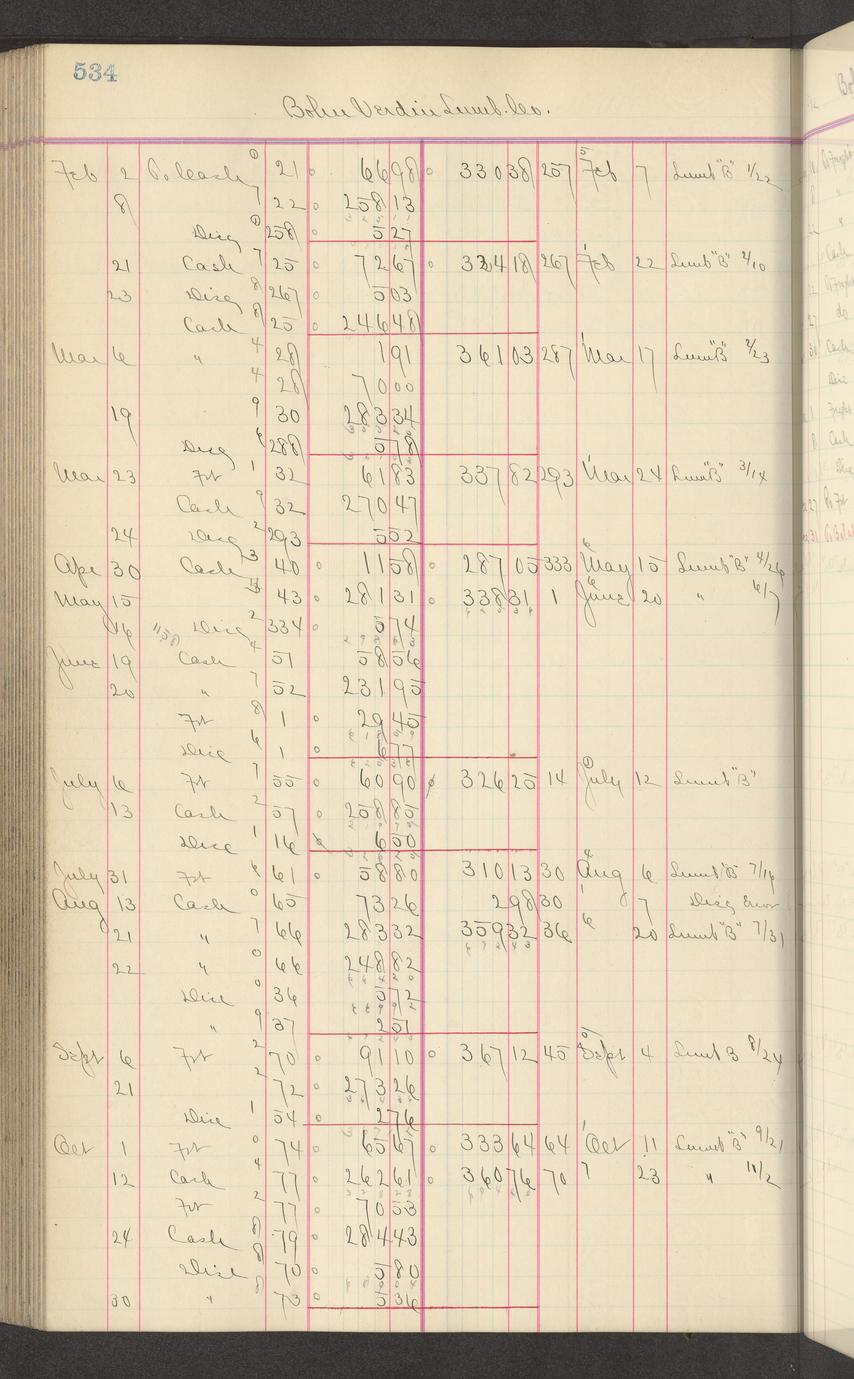 534
Bohn Verdin Lumb. Co.
Feb 2 To Cash 21 66 98 330 38 257 Feb 7 Lumb "B" 1/22
8 22 258 13
Disc 258 5 27
21 Cash 25 72 67 324 18 267 Feb 22 Lumb "B" 2/10
23 Disc 267 5 03
Cash 25 246 48
Mar 6 " 28 1 91 361 03 287 Mar 17 Lumb "B" 2/23
28 70 00
19 30 283 34
Disc 288 5 78
Mar 23 Frt 32 61 83 337 82 293 Mar 24 Lumb "B" 3/14
Cash 32 270 47
24 Disc 293 5 52
Apr 30 Cash 40 11 58 287 05 333 May 15 Lumb "B" 4/26
May 15 43 281 31 338 31 1 June 20 " 6/7
16 "158 Disc 334 5 74
June 19 Cash 51 58 56
20 " 52 231 95
Frt 1 29 45
Disc 1 6 77
July 6 Frt 55 60 90 326 25 14 July 12 Lumb "B"
13 Cash 57 258 85
Disc 16 6 50
July 31 Frt 61 58 80 310 13 30 Aug 6 Lumb "B" 7/14
Aug 13 Cash 65 73 26 2 98 30 7 Disc Error
21 " 66 283 32 359 32 36 20 Lumb "B" 7/31
22 " 66 248 82
Disc 36 5 72
" 37 2 51
Sept 6 Frt 70 91 10 367 12 45 Sept 4 Lumb B 8/24
21 72 273 26
Disc 54 2 76
Oct 1 Frt 74 65 67 333 64 64 Oct 11 Lumb "B" 9/21
12 Cash 77 262 61 360 76 70 23 " 11/2
Frt 77 70 53
24 Cash 79 284 43
Disc 70 5 80
30 " 73 5 36